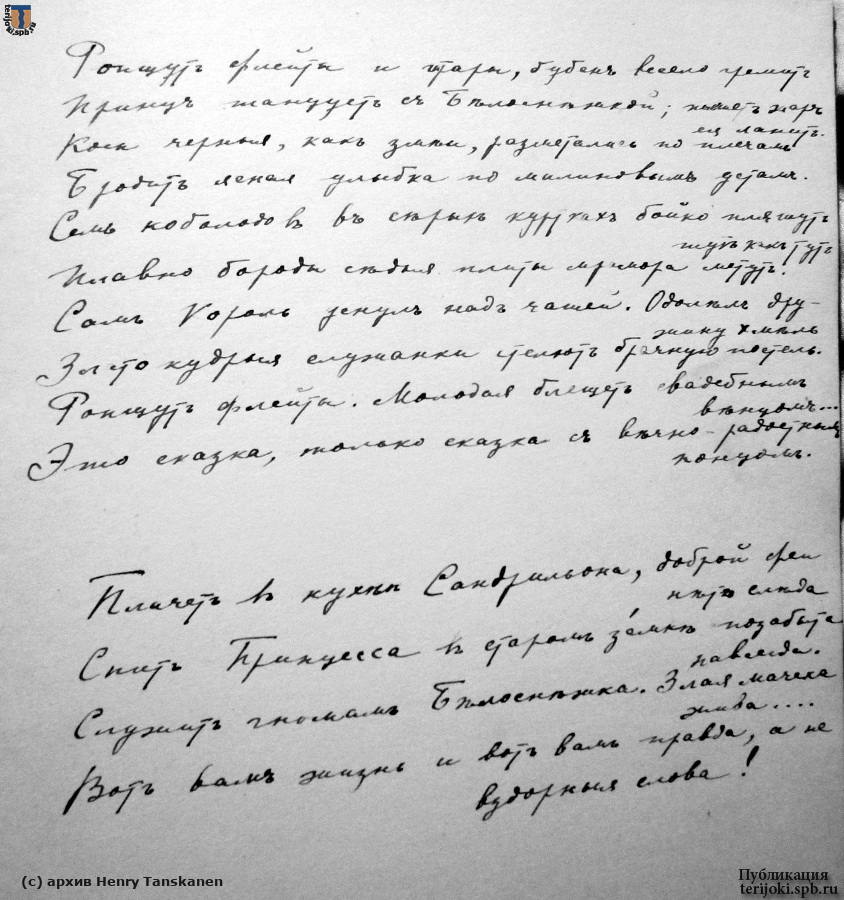 terijoki.spb.ru
Ропщутъ флейты и гитары, бубенъ весело гремитъ
Принцъ танцуетъ съ Бѣлоснѣжкой; пышетъ жаръ
ея ланитъ.
Косы черныя, какъ змѣи, разметались по плечамъ
Бродитъ ясная улыбка по малиновымъ устамъ.
Семь кобольдовъ въ сѣрыхъ курткахъ бойко пляшутъ
тутъ какъ тутъ
Плавно бороды сѣдыя плиты мрамора метутъ.
Самъ Король уснулъ надъ чашей. Одолѣлъ дру-
жину хмѣль
Зато кудрыя служанки стелютъ брачную постель.
Ропщутъ флейты. Молодая блещетъ свадебнымъ
вѣнцомъ...
Это сказка, только сказка съ вѣчно-радостнымъ
концомъ.
Плачетъ въ кухнѣ Сандрильона, доброй феи
нѣтъ слѣда
Спитъ Принцесса въ старомъ за́мкѣ позабыта
навсегда.
Служитъ гномамъ Бѣлоснѣжка. Злая мачеха
жива....
Вотъ вамъ жизнь и вотъ вамъ правда, а не
вздорныя слова!
(c) архив Henry Tanskanen
Публикация
terijoki.spb.ru